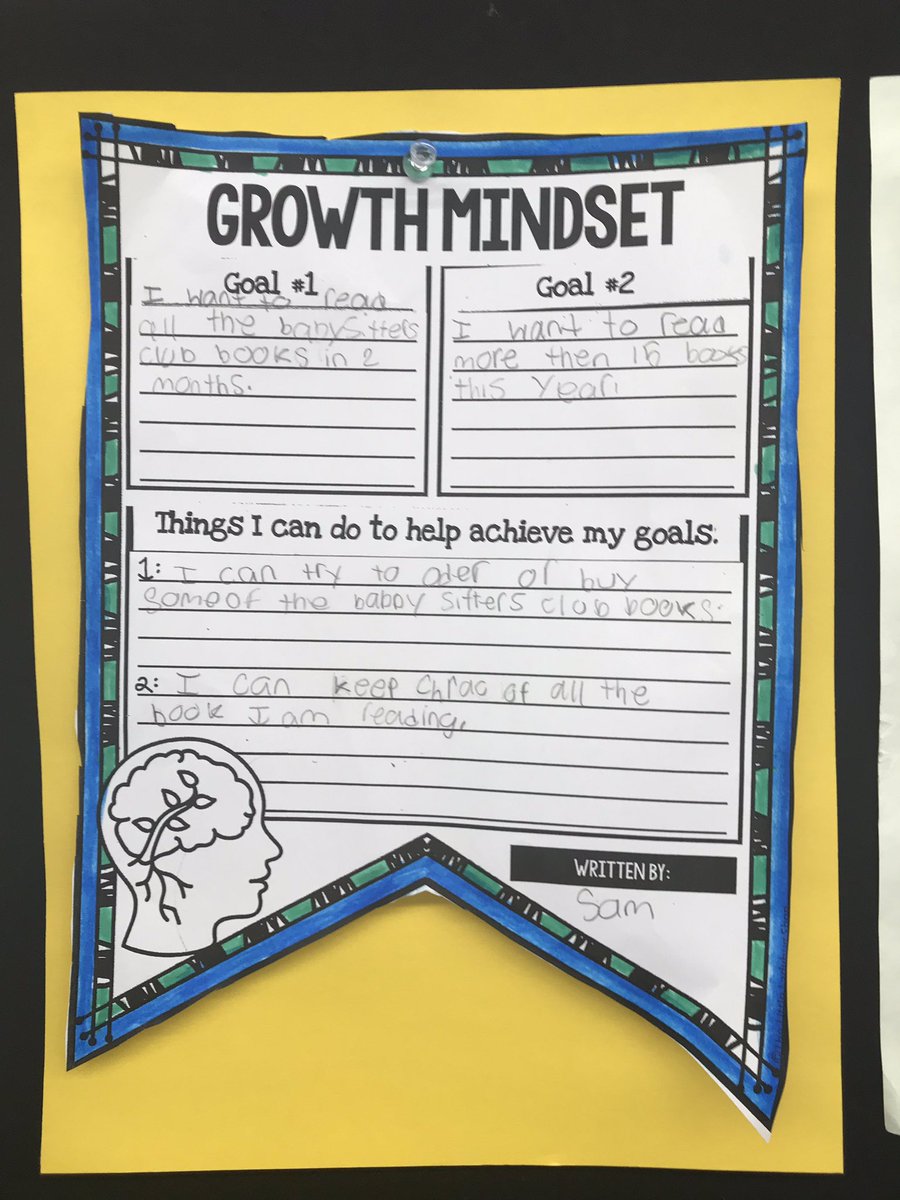 GROWTH MINDSET
Goal #1
I want to read
all the babysitters
club books in 2
months.
Goal #2
I want to read
more then 15 books
this year.
Things I can do to help achieve my goals.
1: I can try to oder or buy
some of the babby sitters club books.
2: I can keep chrac of all the
book I am reading.
WRITTEN BY:
Sam